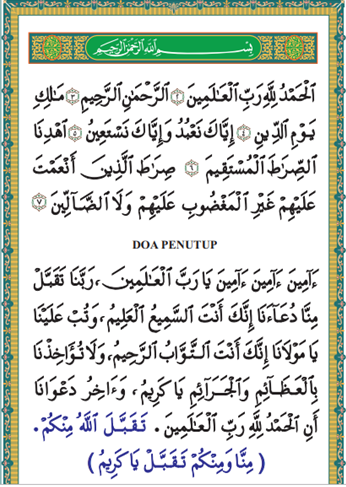 بِسْمِ اللهِ الرَّحْمٰنِ الرَّحِيْمِ
اَلْحَمْدُ لِلّٰهِ رَبِّ الْعَـٰلَمِينَ ۝٢ الرَّحْمٰنِ الرَّحِيمِ ۝٣ مَـٰلِكِ
يَوْمِ الدِّينِ ۝٤ إِيَّاكَ نَعْبُدُ وَإِيَّاكَ نَسْتَعِينُ ۝٥ اهْدِنَا
الصِّرَاطَ الْمُسْتَقِيمَ ۝٦ صِرَاطَ الَّذِينَ أَنْعَمْتَ
عَلَيْهِمْ غَيْرِ الْمَغْضُوبِ عَلَيْهِمْ وَلَا الضَّآلِّينَ ۝٧
DOA PENUTUP
ءَامِينَ ءَامِينَ ءَامِينَ يَا رَبَّ الْعَـٰلَمِينَ، رَبَّنَا تَقَبَّلْ
مِنَّا دُعَآءَنَا إِنَّكَ أَنْتَ السَّمِيعُ الْعَلِيمُ، وَتُبْ عَلَيْنَا
يَا مَوْلَانَا إِنَّكَ أَنْتَ التَّوَّابُ الرَّحِيمُ، وَلَا تُؤَاخِذْنَا
بِالْعَظَآئِمِ وَالْجَرَآئِمِ يَا كَرِيمُ، وَءَاخِرُ دَعْوَانَا
أَنِ الْحَمْدُ لِلّٰهِ رَبِّ الْعَـٰلَمِينَ. تَقَبَّلَ اللّٰهُ مِنْكُمْ.
( مِنَّا وَمِنْكُمْ تَقَبَّلْ يَا كَرِيمُ )